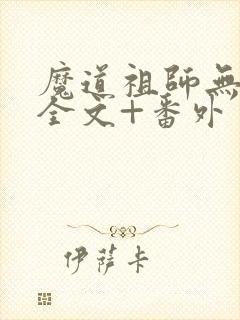 魔道祖師無
全文+番外
伊薩卡